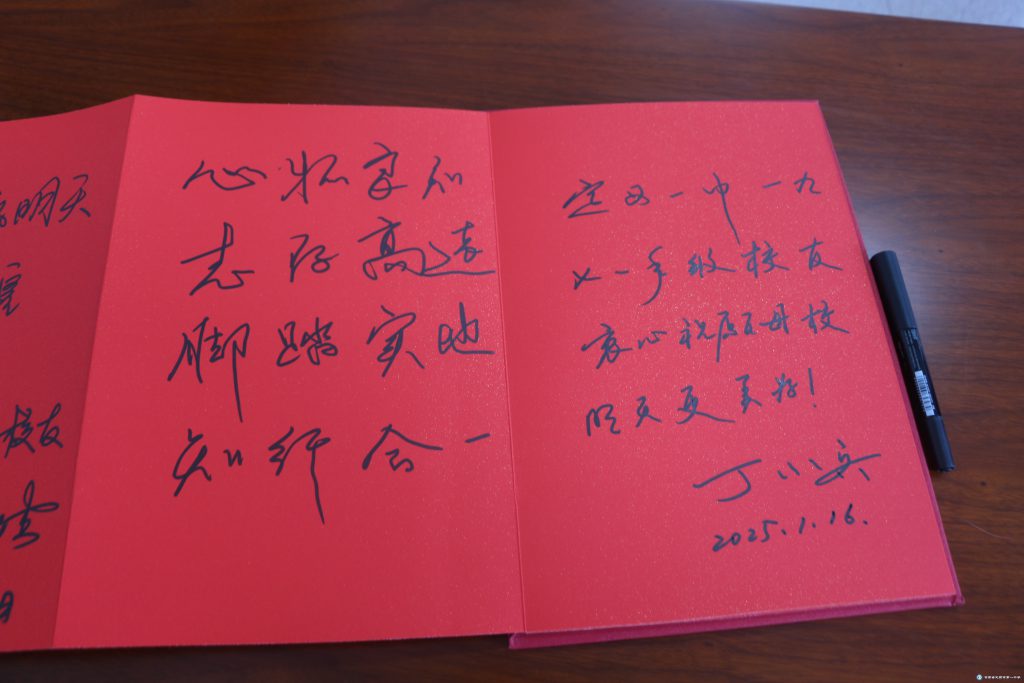 明天
校友
心怀家国
志存高远
脚踏实地
知行合一
定西一中一九
七一年级校友
衷心祝愿母校
明天更美好！
丁小兵
2025.1.16.